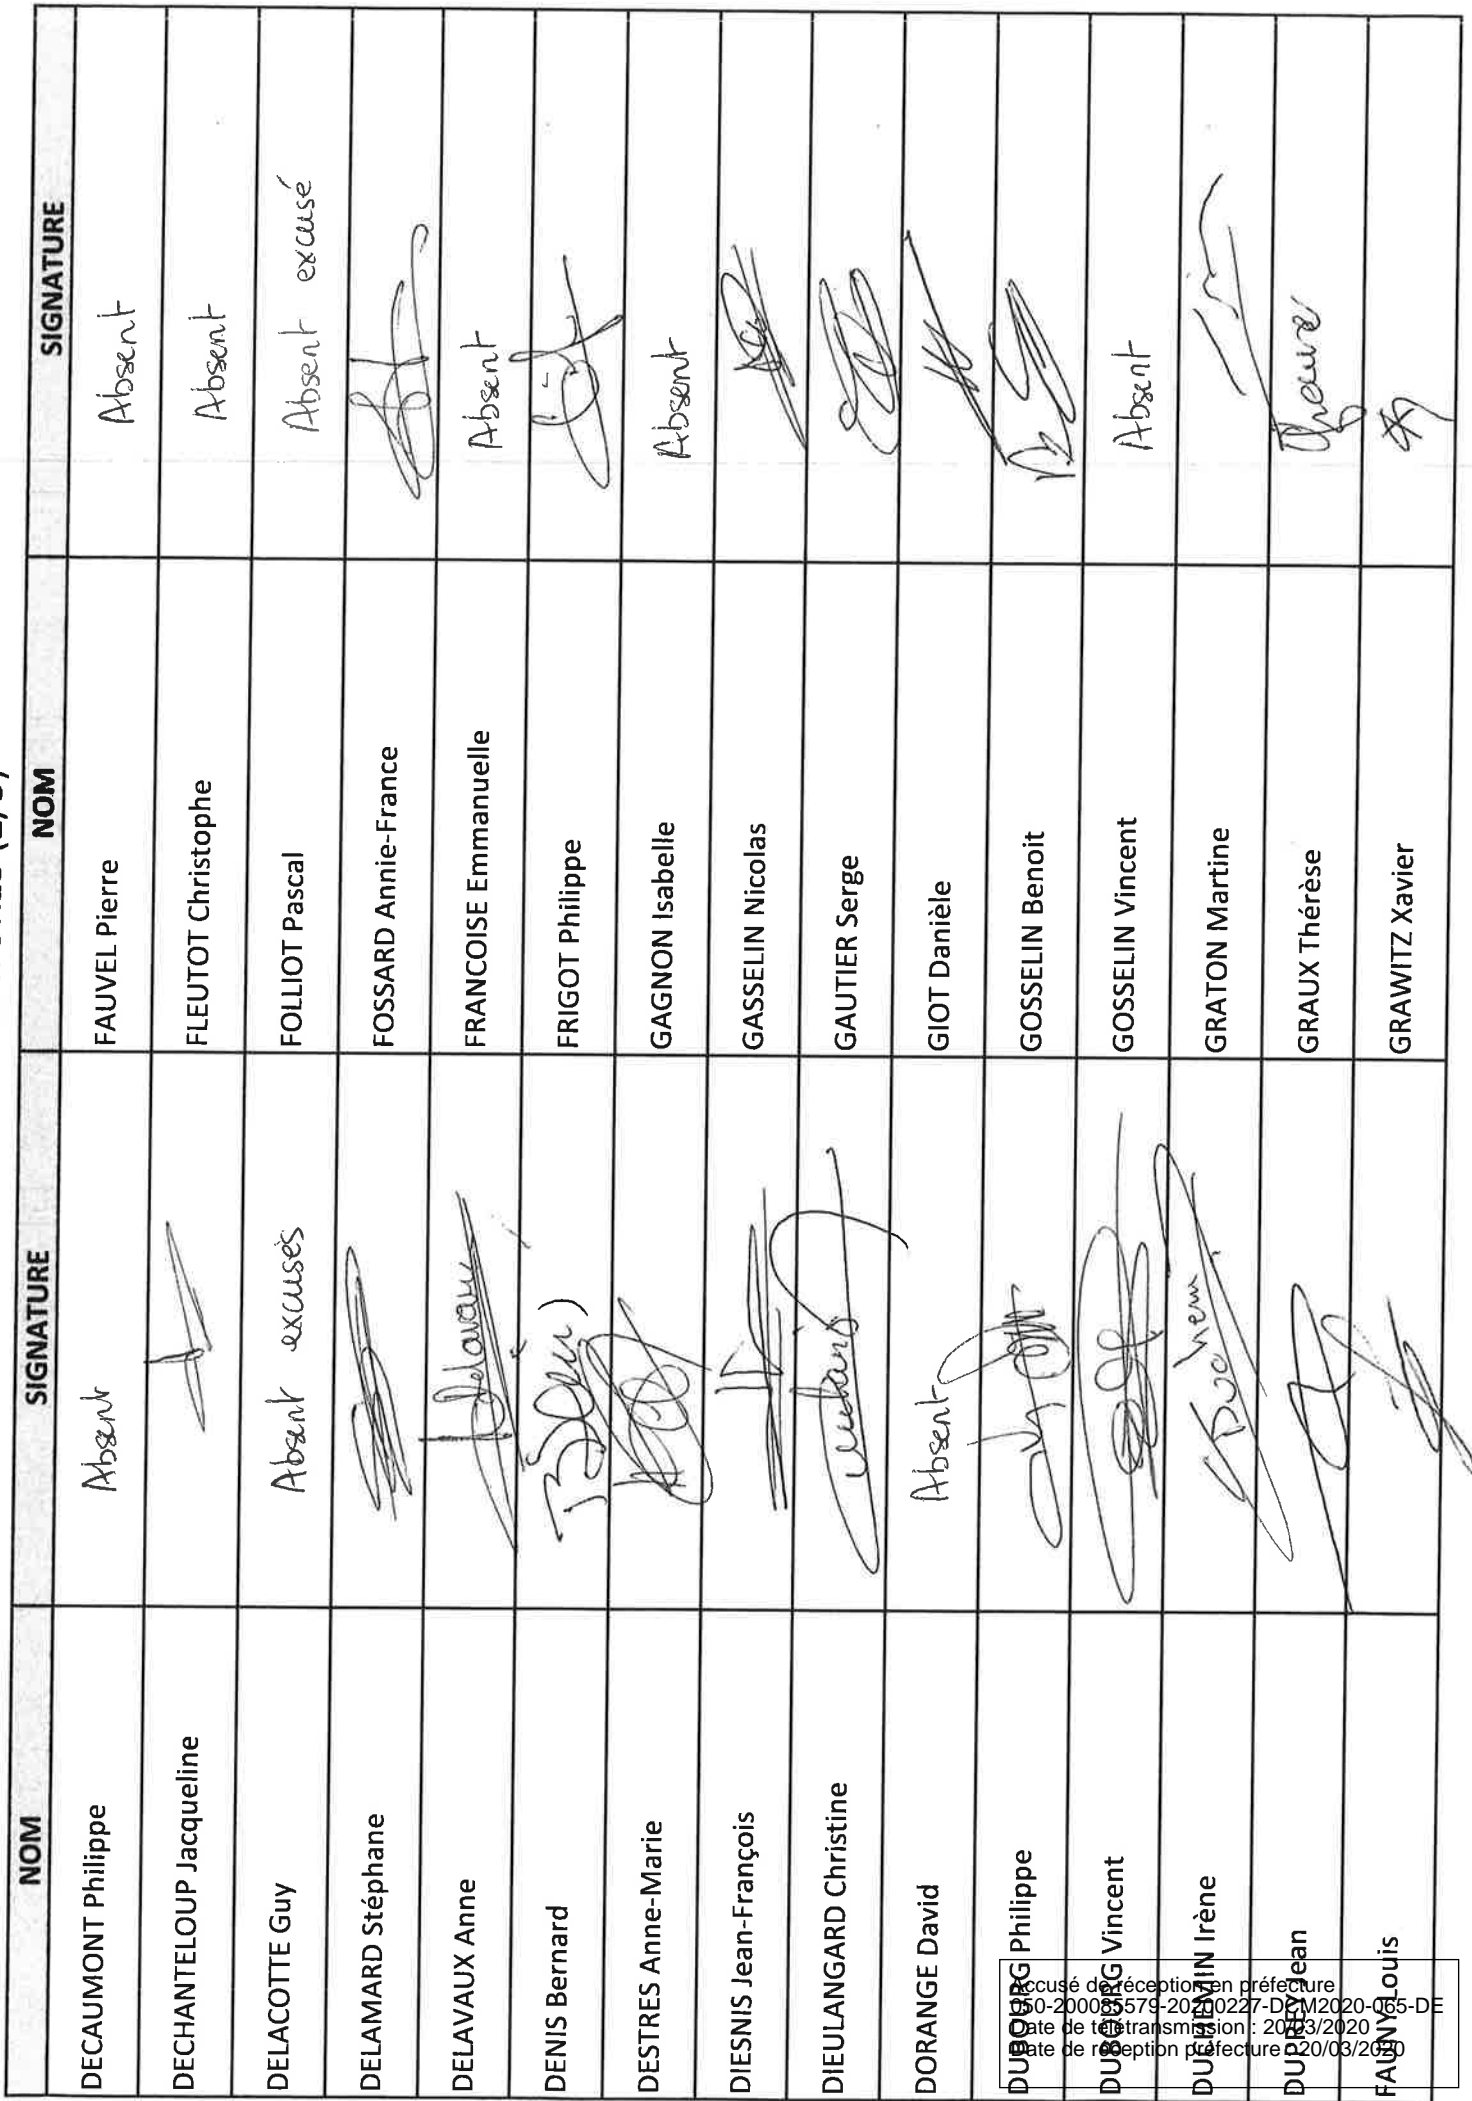 NOM SIGNATURE NOM SIGNATURE
DECAUMONT Philippe Absent FAUVEL Pierre Absent
DECHANTELOUP Jacqueline FLEUTOT Christophe Absent
DELACOTTE Guy Absent excusés FOLLIOT Pascal Absent excusé
DELAMARD Stéphane FOSSARD Annie-France
DELAVAUX Anne Delavaux FRANCOISE Emmanuelle Absent
DENIS Bernard FRIGOT Philippe
DESTRES Anne-Marie GAGNON Isabelle Absent
DIESNIS Jean-François GASSELIN Nicolas
DIEULANGARD Christine GAUTIER Serge
DORANGE David Absent GIOT Danièle
DUBOURG Philippe GOSSELIN Benoit
DUBOURG Vincent GOSSELIN Vincent Absent
DUCHEMIN Irène GRATON Martine
DUPREY Jean GRAUX Thérèse
FAUNY Louis GRAWITZ Xavier
Accusé de réception en préfecture
050-200085579-20200227-DCM2020-065-DE
Date de télétransmission : 20/03/2020
Date de réception préfecture : 20/03/2020